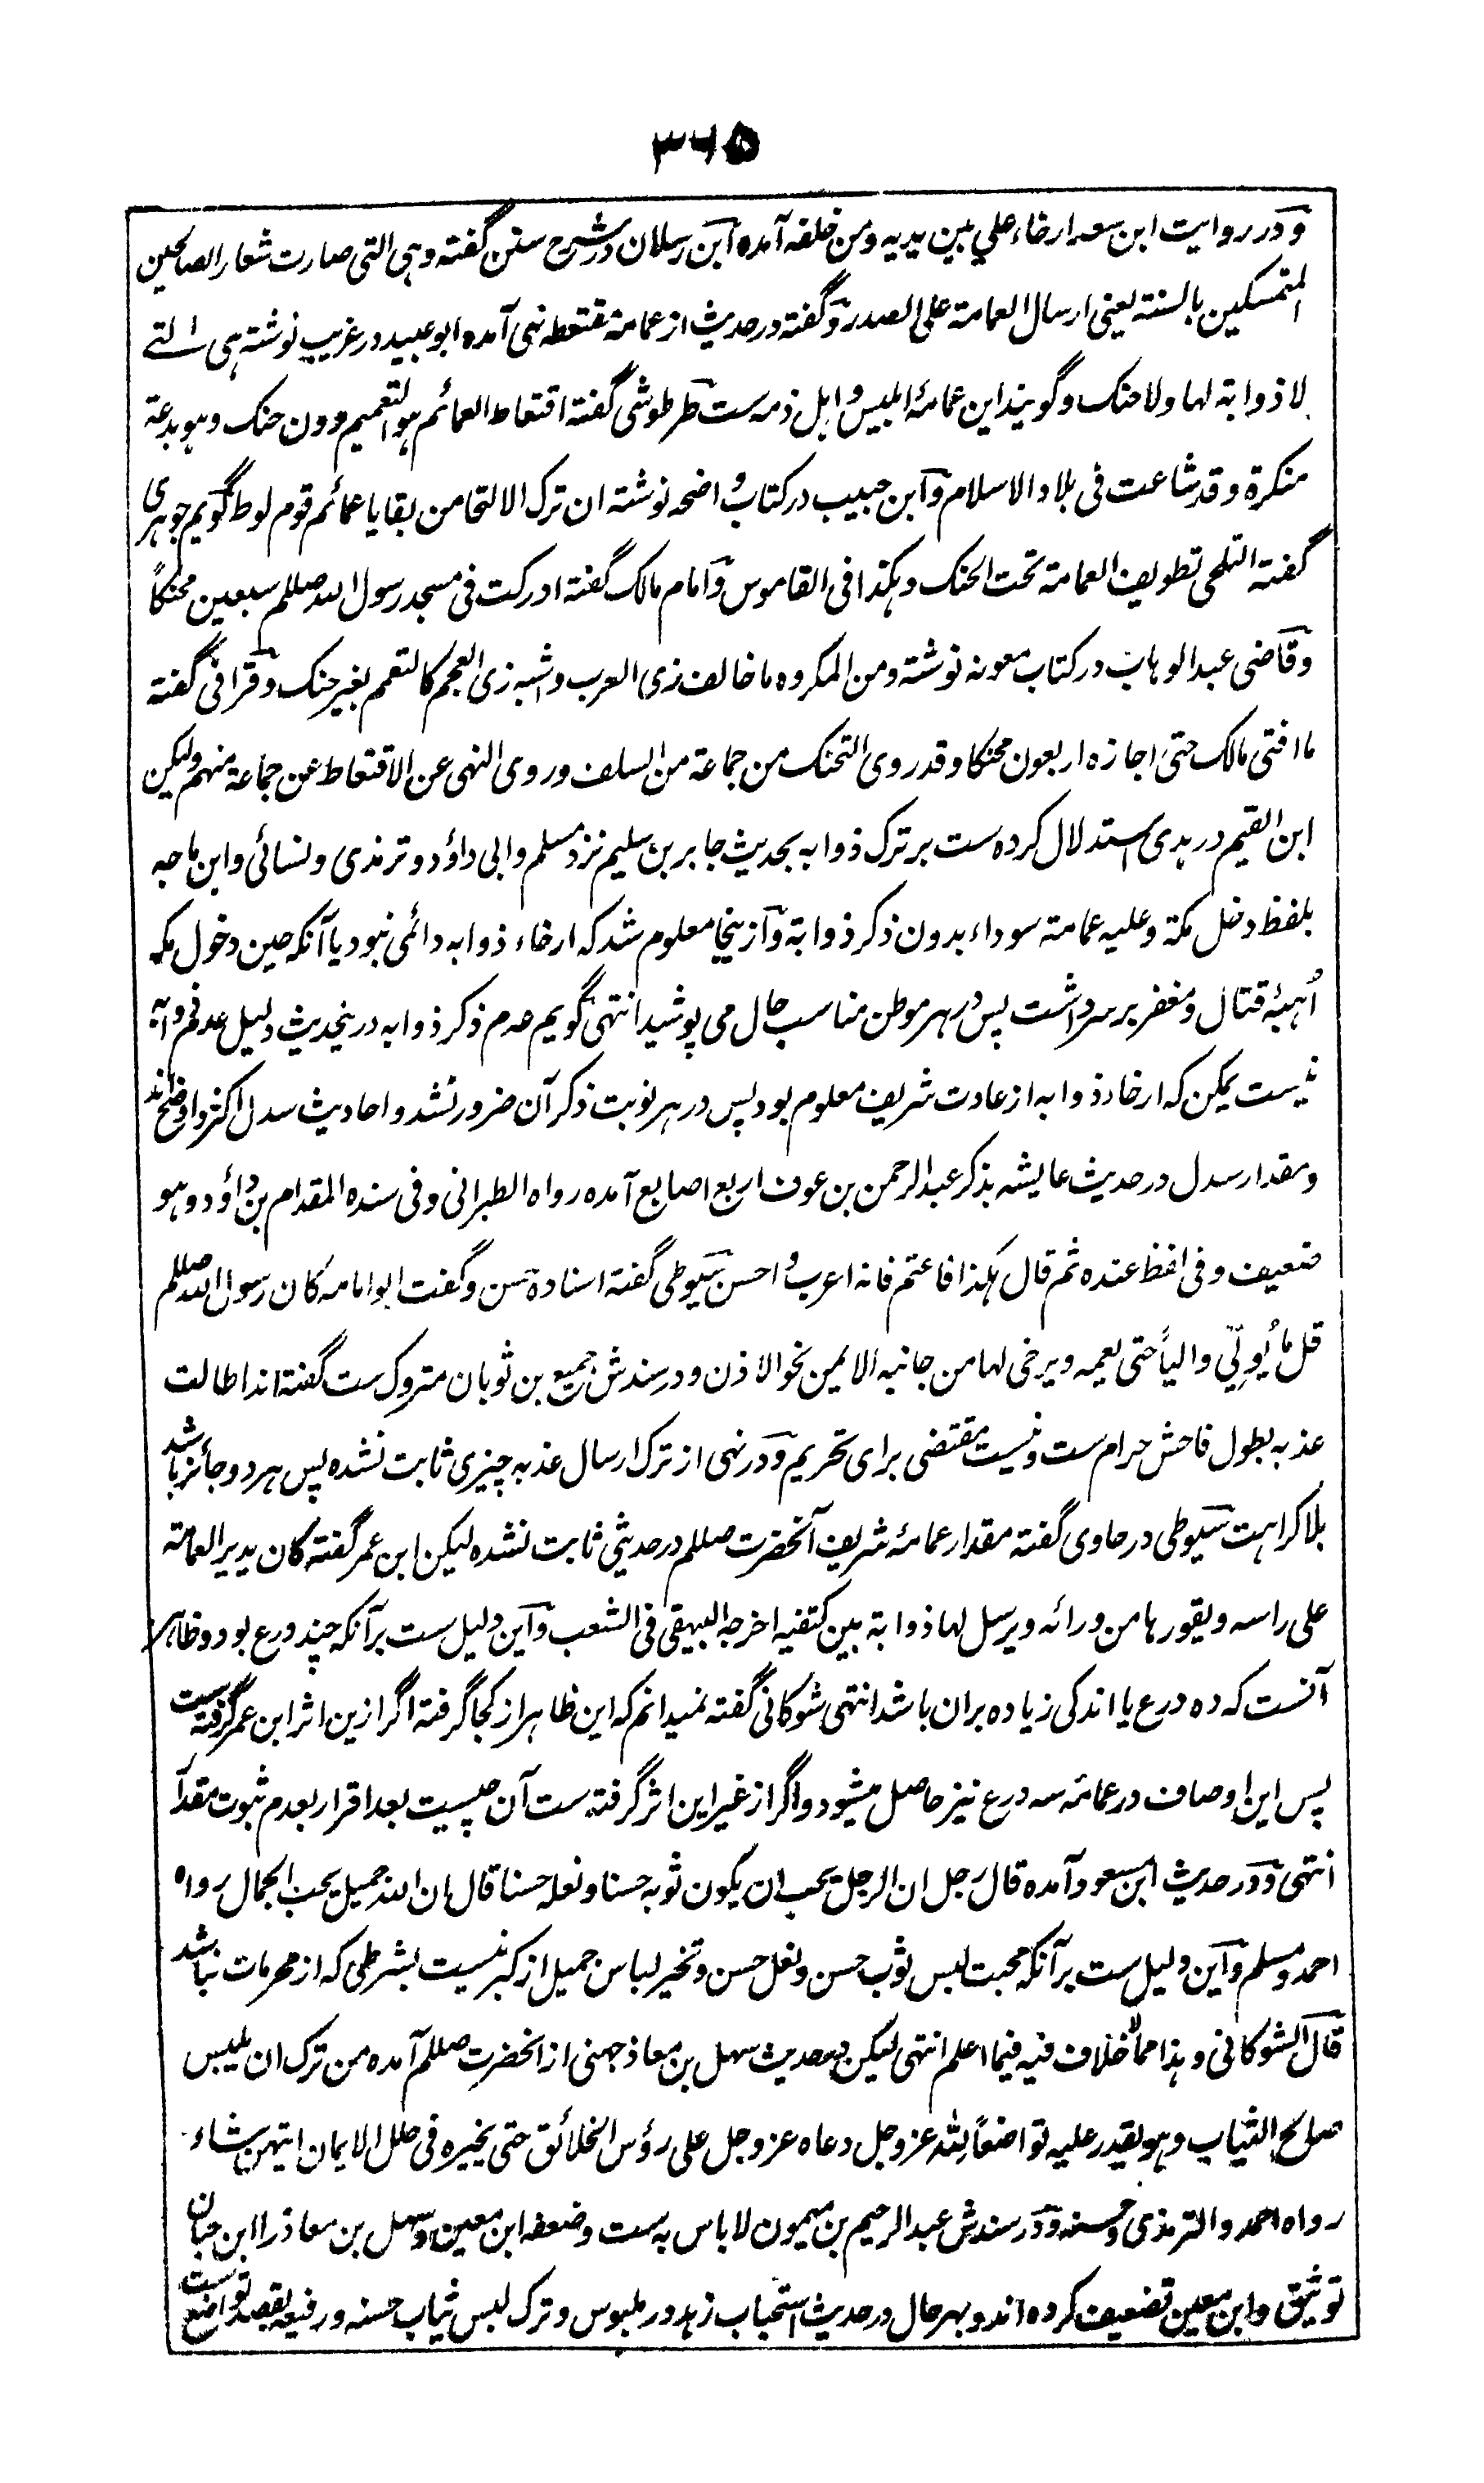 ۳۶۵
و در روایت ابن سعد ارخاء علي بين يديه ومن خلفه آمده ابن رسلان در شرح سنن گفته وہی التی صارت شعار الصالحین
المتمسکین بالسنة یعنی ارسال العمامة علی الصدر و گفته در حدیث از عمامۀ مقتعطه نہی آمده ابو عبید در غریب نوشته ہی التے
لا ذوابة لہا ولا حنک و گویند این عمامۂ ابلیس و اہل ذمہ ست طرطوشی گفته اقتعاط العمائم ہو التعمیم دون حنک و ہو بدعة
منکرة و قد شاعت فی بلاد الاسلام و ابن حبیب در کتاب واضحہ نوشته ان ترک الالتحا من بقایا عمائم قوم لوط گویم جوہری
گفته التلحی تطویف العمامة تحت الحنک و ہکذا فی القاموس و امام مالک گفته ادرکت فی مسجد رسول اللہ صللم سبعین محنکاً
و قاضی عبد الوہاب در کتاب معونہ نوشته و من المکروہ ما خالف زی العرب و اشبہ زی العجم کالتعمم بغیر حنک و قرافی گفته
ما افتی مالک حتی اجازہ اربعون محنکا و قد روی التحنک من جماعة من السلف و روی النہی عن الاقتعاط عن جماعة منہم ولیکن
ابن القیم در ہدی استدلال کردہ ست بر ترک ذوابہ بحدیث جابر بن سلیم نزد مسلم و ابی داؤد و ترمذی و نسائی و ابن ماجہ
بلفظ دخل مکة و علیہ عمامة سوداء بدون ذکر ذوابة و ازینجا معلوم شد کہ ارخاء ذوابہ دائمی نبود یا آنکہ حین دخول مکہ
اُہبۂ قتال و مغفر بر سر داشت پس در ہر موطن مناسب حال می پوشید انتہی گویم عدم ذکر ذوابہ درینحدیث دلیل عدم ذوابہ
نیست یمکن کہ ارخاء ذوابہ از عادت شریف معلوم بود پس در ہر نوبت ذکر آن ضرور نشد و احادیث سدل اکثر و اوضح اند
و مقدار سدل در حدیث عایشہ بذکر عبد الرحمن بن عوف اربع اصابع آمده رواہ الطبرانی و فی سندہ المقدام بن داؤد و ہو
ضعیف و فی لفظ عندہ ثم قال ہکذا فاعتم فانہ اعرب و احسن سیوطی گفته اسنادہ حسن و گفت ابو امامہ کان رسول اللہ صللم
قل ما یُولّي والیاً حتی یعمہ و یرخی لہا من جانبہ الایمن نحو الاذن و در سندش جمیع بن ثوبان متروک ست گفته اند اطالت
عذبہ بطول فاحش حرام ست و نیست مقتضی برای تحریم و در نہی از ترک ارسال عذبہ چیزی ثابت نشدہ پس ہر دو جائز باشد
بلا کراہت سیوطی در حاوی گفته مقدار عمامۂ شریف آنحضرت صللم در حدیثی ثابت نشدہ لیکن ابن عمر گفته کان یدیر العمامة
علی راسہ و یقورہا من ورائہ و یرسل لہا ذوابة بین کتفیہ اخرجہ البیہقی فی الشعب و این دلیل ست بر آنکہ چند ذرع بود و ظاہر
آنست کہ دہ ذرع یا اندکی زیادہ بران باشد انتہی شوکانی گفته نمیدانم کہ این ظاہر از کجا گرفته اگر ازین اثر ابن عمر گرفته ست
پس این اوصاف در عمائمہ سہ ذرع نیز حاصل میشود و اگر از غیر این اثر گرفته ست آن چیست بعد اقرار بعدم ثبوت مقدار
انتہی و در حدیث ابن مسعود آمده قال رجل ان الرجل یحب ان یکون ثوبہ حسنا و نعلہ حسنا قال ان اللہ جمیل یحب الجمال رواہ
احمد و مسلم و این دلیل ست بر آنکہ محبت لبس ثوب حسن و نعل حسن و تخیر لباس جمیل از کبر نیست بشرطی کہ از محرمات نباشد
قال الشوکانی و ہذا مما لا خلاف فیہ فیما اعلم انتہی لیکن در حدیث سہل بن معاذ جہنی از آنحضرت صللم آمده من ترک ان یلبس
صالح الثیاب و ہو یقدر علیہ تواضعاً للہ عز و جل دعاہ عز و جل علی رؤس الخلائق حتی یخیرہ فی حلل الایمان ایتہن شاء
رواہ احمد و الترمذی و حسنہ و در سندش عبد الرحیم بن میمون لا باس بہ ست و ضعفہ ابن معین و سہل بن معاذ را ابن حبان
توثیق و ابن معین تضعیف کردہ اند و بہر حال در حدیث استحباب زہد در ملبوس و ترک لبس ثیاب حسنہ و رفیعہ بقصد تواضع ست